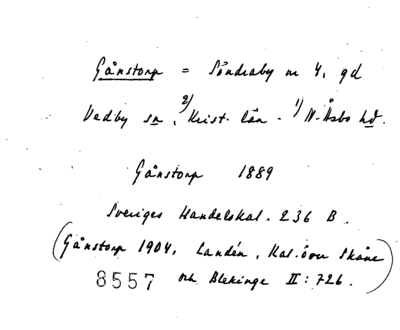 Gånstorp = Söndraby nr 4, gd
Vedby sn, 2) Krist. län. 1) N. Åsbo hd.
Gånstorp 1889
Sveriges Handelskal. 236 B.
(Gånstorp 1904, Landén, Kal. över Skåne
8557 och Blekinge II: 726.)